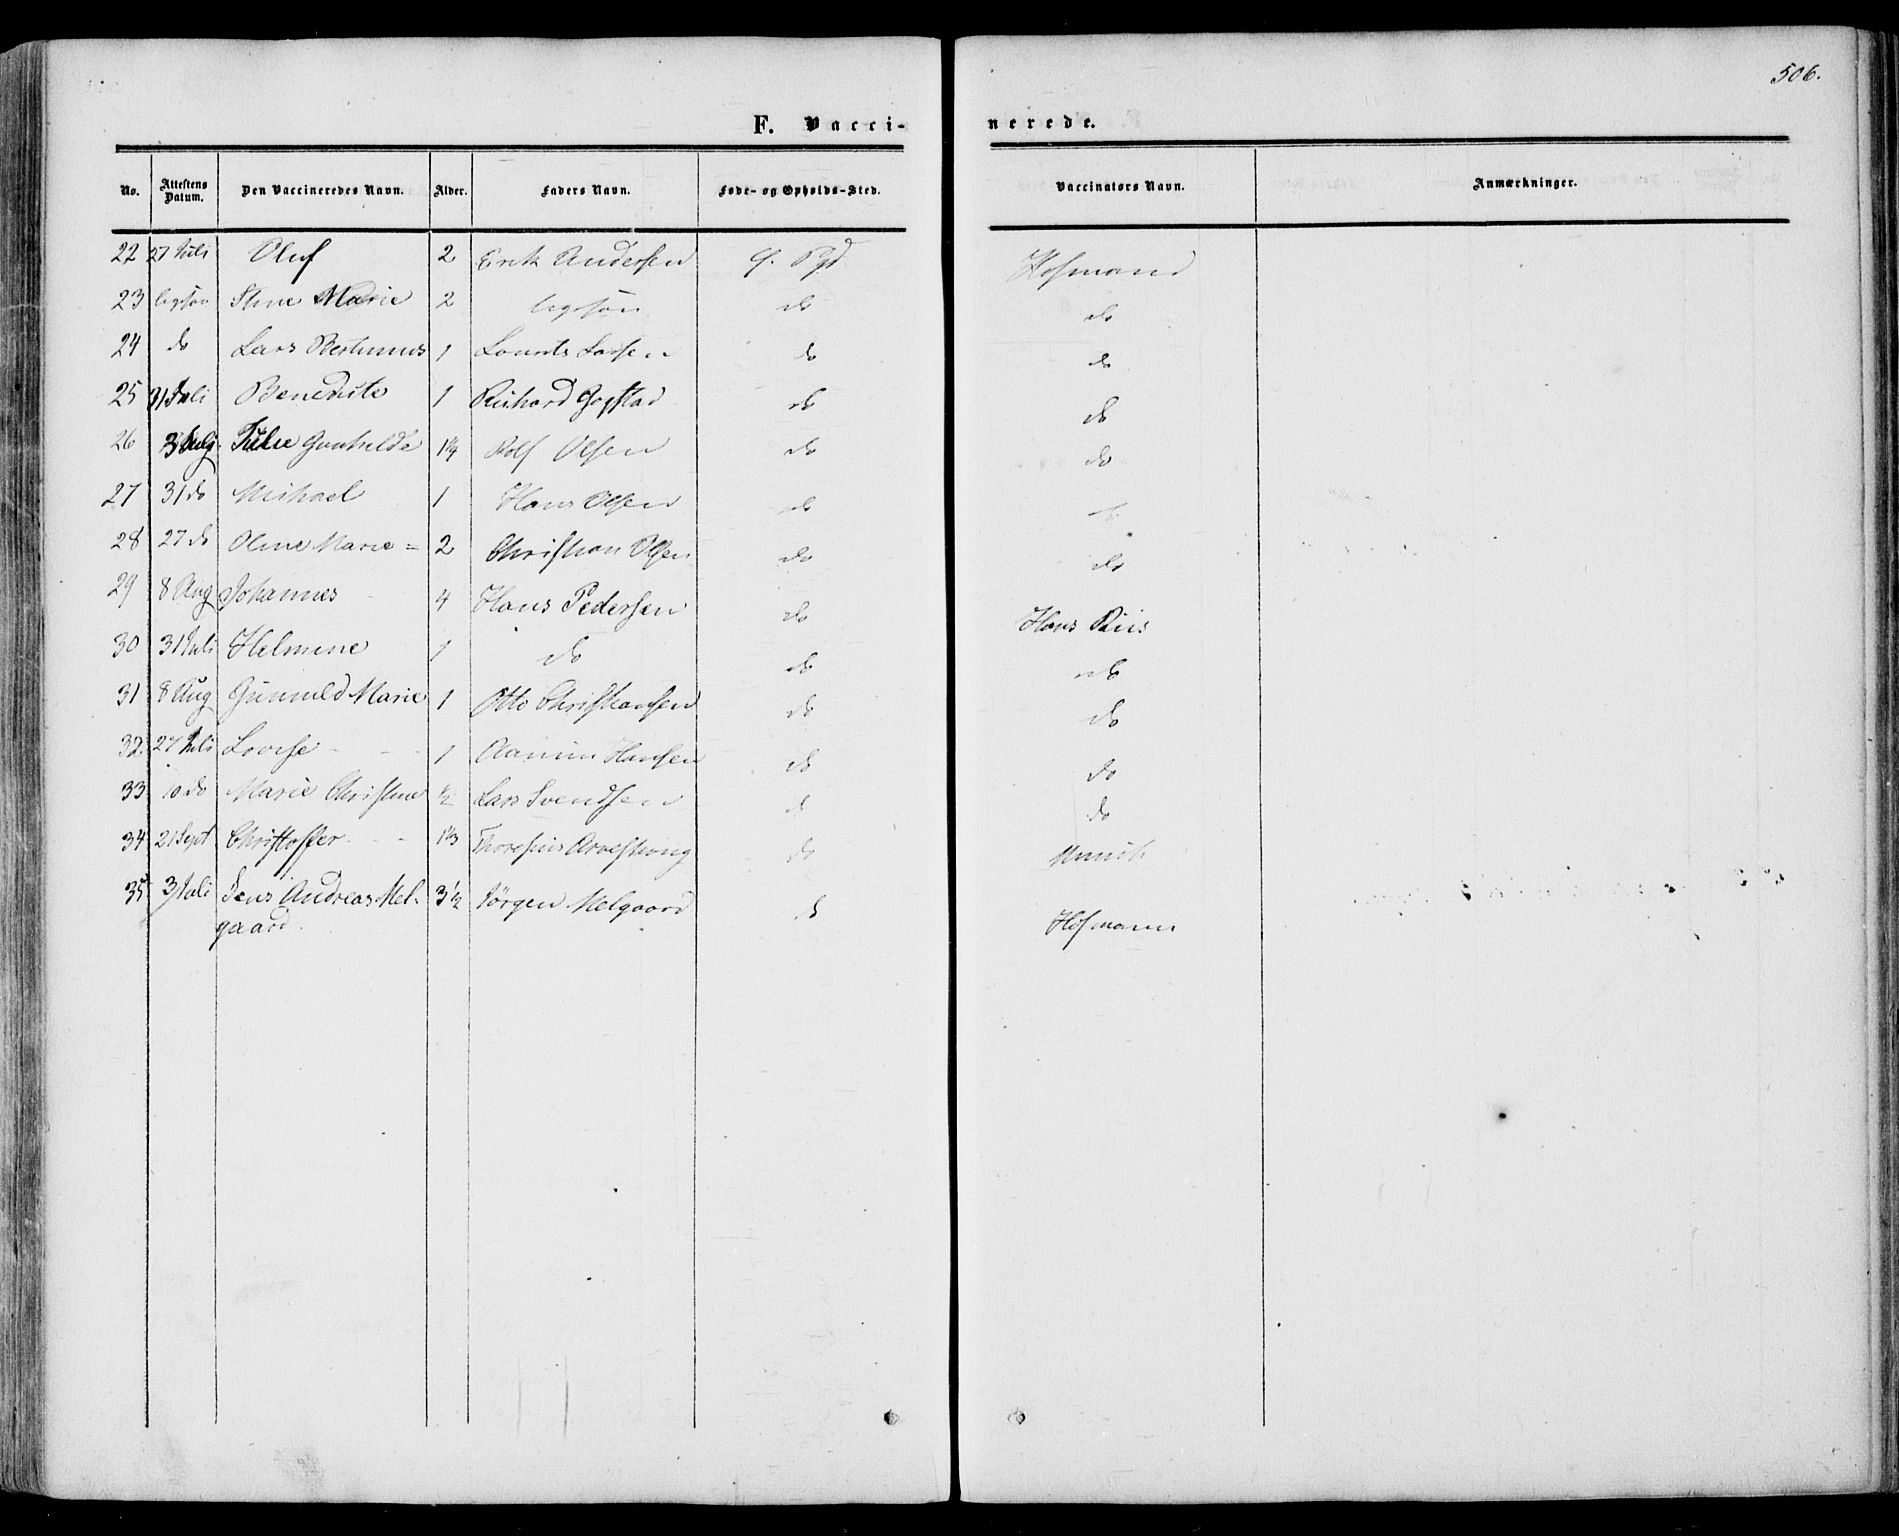 506.
F. Vacci-nerede.
No. Attestens Datum. Den Vaccineredes Navn. Alder. Faders Navn. Føde- og Opholds-Sted. Vaccinators Navn. Anmærkninger.
22 27 Juli Oluf 2 Erik Andersen Hofmand
23 ligesaa Stine Marie 2 ligesaa do do
24 do Lars 1 do do
25 31 Juli Benedicte 1 Richard Gogstad do do
26 Gunhilde 1¼ Rolf Olsen do do
27 31 do Michael 1 Hans Olsen do do
28 27 do Oline Marie = 2 Christian Olsen do do
29 8 Aug Johannes 4 Hans Pedersen do Hans Riis
30 31 Juli Helmine 1 do do do
31 8 Aug Gunnild Marie 1 Otto Christiansen do do
32. 27 Juli Lovise 1 Hansen do do
33 10 do Marie Christine ½ Lars Svendsen do do
34 21 Sept Christoffer 1⅓ do Munch
35 3 Juli Jens Andreas Mel- 3½ Jørgen Melgaard do Hofmann
gaard.